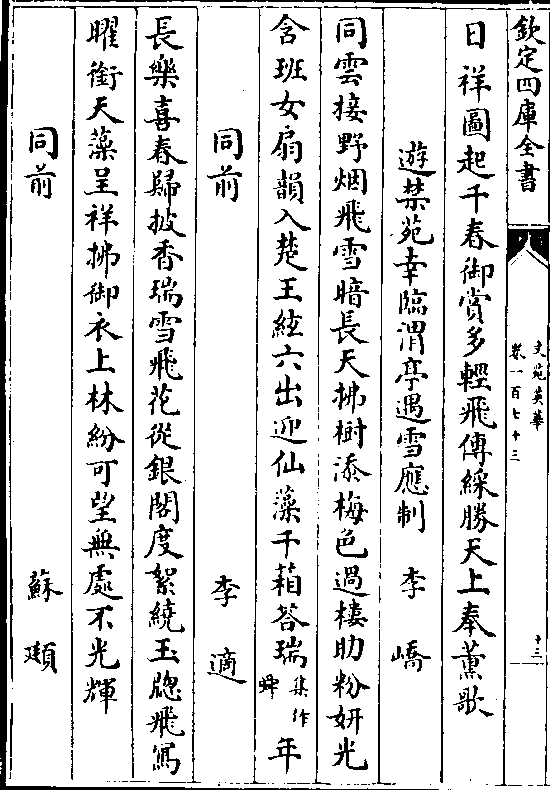 欽定四庫全書
文苑英華
卷一百七十三
十三
日祥圖起千春御賞多輕飛傳綵勝天上奉薰歌
遊禁苑幸臨渭亭遇雪應制　李嶠
同雲接野烟飛雪暗長天拂樹添梅色過樓助粉妍光
含班女扇韻入楚王絃六出迎仙藻千箱荅瑞集作舜年
同前　李適
長樂喜春歸披香瑞雪飛花從銀閣度絮繞玉牕飛寫
曜銜天藻呈祥拂御衣上林紛可望無處不光輝
同前　蘇頲